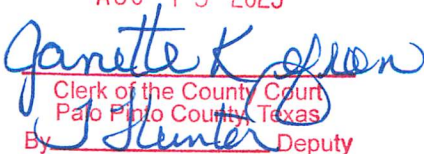 Janette K Green
Clerk of the County Court
Palo Pinto County, Texas
By J Hunter Deputy